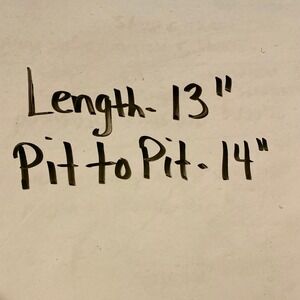 Length- 13"
Pit to Pit - 14"